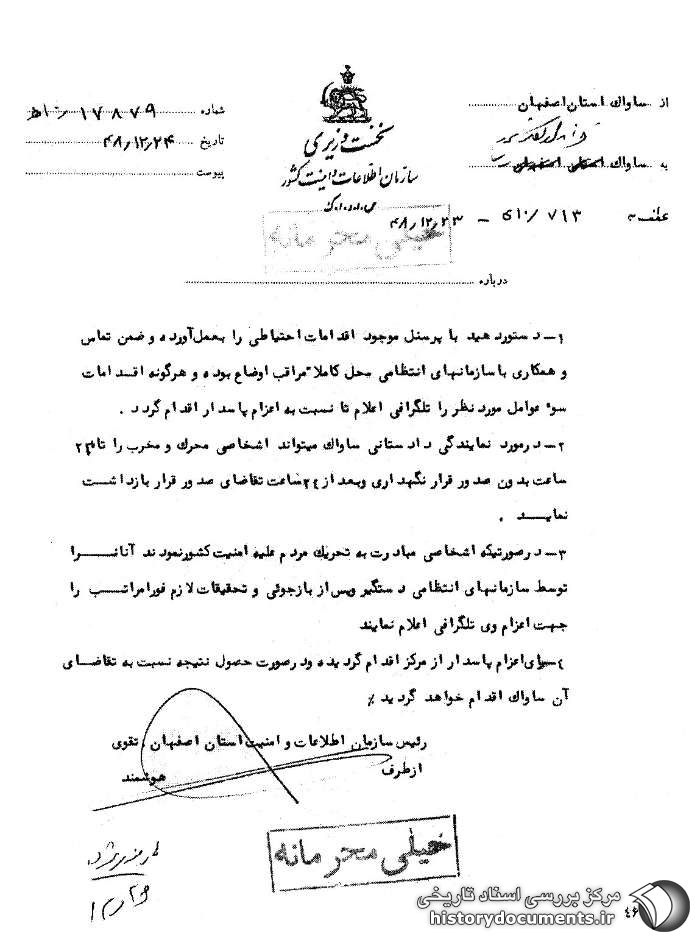 از ساواک استان اصفهان
به ساواک
عطف به ۷۱۳/ ۱۰ی – ۴۸/۱۲/۲۳
نخست وزیری
سازمان اطلاعات و امنیت کشور
س.ا.و.ا.ک
شماره ۱۷۸۷۹/ ۱۰ھ
تاریخ ۴۸/۱۲/۲۴
پیوست
خیلی محرمانه
درباره
۱– دستور دهید با پرسنل موجود اقدامات احتیاطی را بعمل‌آورده و ضمن تماس
و همکاری با سازمانهای انتظامی محل کاملا" مراقب اوضاع بوده و هرگونه اقدامات
سوء عوامل مورد نظر را تلگرافی اعلام تا نسبت به اعزام پاسدار اقدام گردد .
۲– در مورد نمایندگی دادستانی ساواک میتواند اشخاصی محرک و مخرب را تا ۲۴
ساعت بدون صدور قرار نگهداری و بعد از ۲۴ ساعت تقاضای صدور قرار بازداشت
نماید .
۳– در صورتیکه اشخاصی مبادرت به تحریک مردم علیه امنیت کشور نمودند آنان را
توسط سازمانهای انتظامی دستگیر و پس از بازجوئی و تحقیقات لازم فورا مراتب را
جهت اعزام وی تلگرافی اعلام نمایند
۴– برای اعزام پاسدار از مرکز اقدام گردیده و در صورت حصول نتیجه نسبت به تقاضای
آن ساواک اقدام خواهد گردید ٪
رئیس سازمان اطلاعات و امنیت استان اصفهان . تقوی
از طرف هوشمند
خیلی محرمانه
مرکز بررسی اسناد تاریخی
historydocuments.ir
۴۶